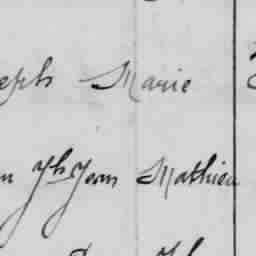 eph Marie
n Jh Jean Mathieu